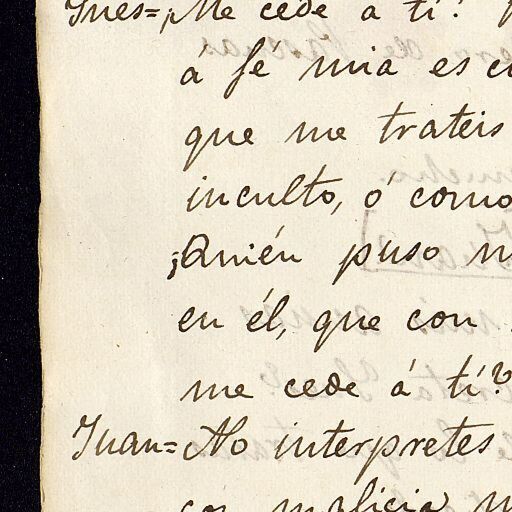 Ines=¡Me cede á tí!
á fe mia es
que me trateis
inculto, ó como
¡Quién puso
en él, que con
me cede á tí?
Juan=No interpretes
con malicia